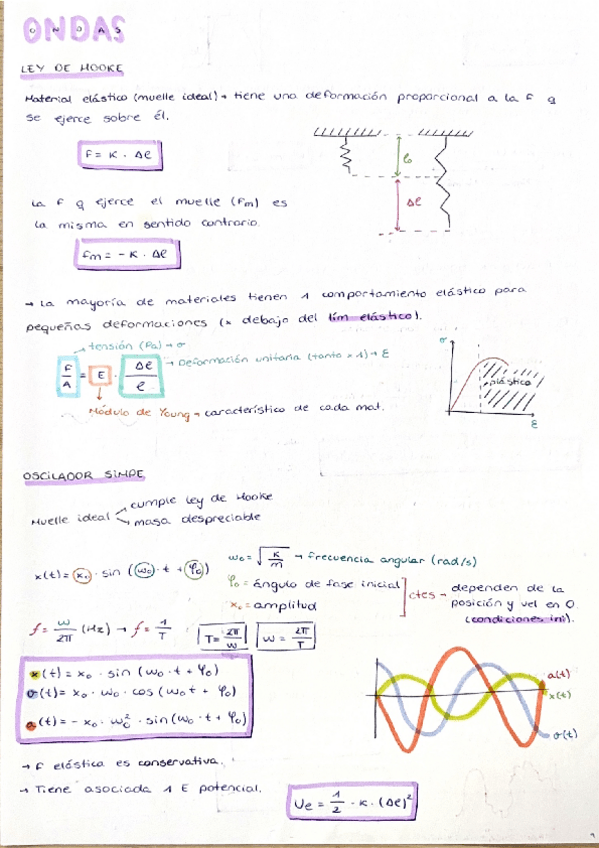 ONDAS
LEY DE HOOKE
Material elástico (muelle ideal) → tiene una deformación proporcional a la F q
se ejerce sobre él.
F = K · Δl
l₀
Δl
La F q ejerce el muelle (Fm) es
la misma en sentido contrario.
Fm = - K · Δl
→ La mayoría de materiales tienen 1 comportamiento elástico para
pequeñas deformaciones (x debajo del lím elástico).
tensión (Pa) → σ
F/A = E · Δl/l → Deformación unitaria (tanto x 1) → ε
Módulo de Young → característico de cada mat.
σ
plástico
ε
OSCILADOR SIMPE
Muelle ideal
cumple ley de Hooke
masa despreciable
x(t) = x₀ · sin (ω₀ · t + φ₀)
ω₀ = √(K/m) → frecuencia angular (rad/s)
φ₀ = ángulo de fase inicial
x₀ = amplitud
ctes → dependen de la
posición y vel en 0.
(condiciones ini).
f = ω/2π (Hz) → f = 1/T
T = 2π/ω
ω = 2π/T
x(t) = x₀ · sin (ω₀ · t + φ₀)
v(t) = x₀ · ω₀ · cos (ω₀ t + φ₀)
a(t) = - x₀ · ω₀² · sin (ω₀ · t + φ₀)
a(t)
x(t)
v(t)
→ F elástica es conservativa.
→ Tiene asociada 1 E potencial.
Ue = 1/2 · K · (Δl)²